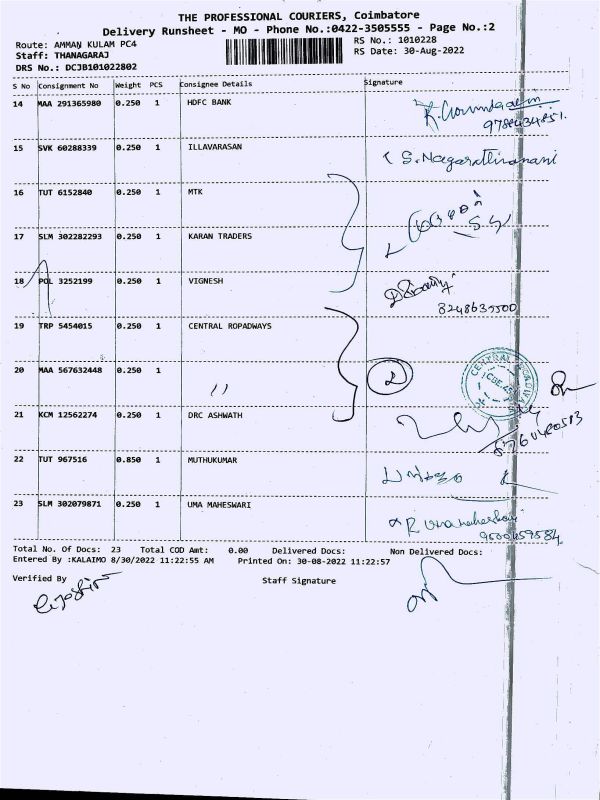 THE PROFESSIONAL COURIERS, Coimbatore
Delivery Runsheet - MO - Phone No.:0422-3505555 - Page No.:2
Route: AMMAN KULAM PC4
RS No.: 1010228
Staff: THANAGARAJ
RS Date: 30-Aug-2022
DRS No.: DCJB101022802
S No Consignment No Weight PCS Consignee Details Signature
14 MAA 291365980 0.250 1 HDFC BANK
15 SVK 60288339 0.250 1 ILLAVARASAN
S. Nagarathinamani
16 TUT 6152840 0.250 1 MTK
17 SLM 302282293 0.250 1 KARAN TRADERS
18 POL 3252199 0.250 1 VIGNESH
19 TRP 5454015 0.250 1 CENTRAL ROPADWAYS
20 MAA 567632448 0.250 1 〃 2
CENTRAL
21 KCM 12562274 0.250 1 DRC ASHWATH
22 TUT 967516 0.850 1 MUTHUKUMAR
23 SLM 302079871 0.250 1 UMA MAHESWARI
R Umamaheshwari
Total No. Of Docs: 23 Total COD Amt: 0.00 Delivered Docs: Non Delivered Docs:
Entered By :KALAIMO 8/30/2022 11:22:55 AM Printed On: 30-08-2022 11:22:57
Verified By Staff Signature